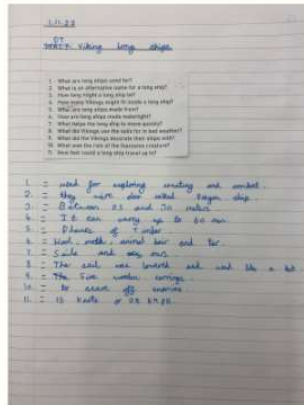 1.11.23
DT
Viking long ships
1. What are long ships used for?
2. What is an alternative name for a long ship?
3. How long might a long ship be?
4. How many Vikings might fit inside a long ship?
5. What are long ships made from?
6. How are long ships made watertight?
7. What helps the long ship to move quickly?
8. What did Vikings use the sails for in bad weather?
9. What did the Vikings decorate their ships with?
10. What was the role of the fearsome creature?
11. How fast could a long ship travel up to?
1. = used for exploring and combat.
2. = they were also called Dragon ship.
3. = Between 25 and 30 meters
4. = It can carry up to 60 men
5. = Planks of Timber
6. = Wool, moth, animal hair and tar.
7. = Sails and oars.
8. = The sail was lowered and used like a tent
9. = The fire wooden carvings.
10. = to scare off enemies.
11. = 15 knots or 28 km